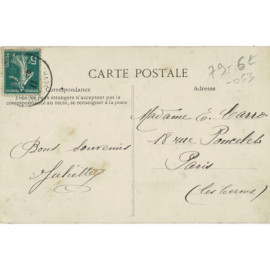 CARTE POSTALE
Correspondance
Tous les pays étrangers n'acceptent pas la
correspondance au recto, se renseigner à la poste
Adresse
79-6t
-053
5
Madame
18 rue Poncelet
Paris
(les Ternes)
Bons souvenirs
Juliette